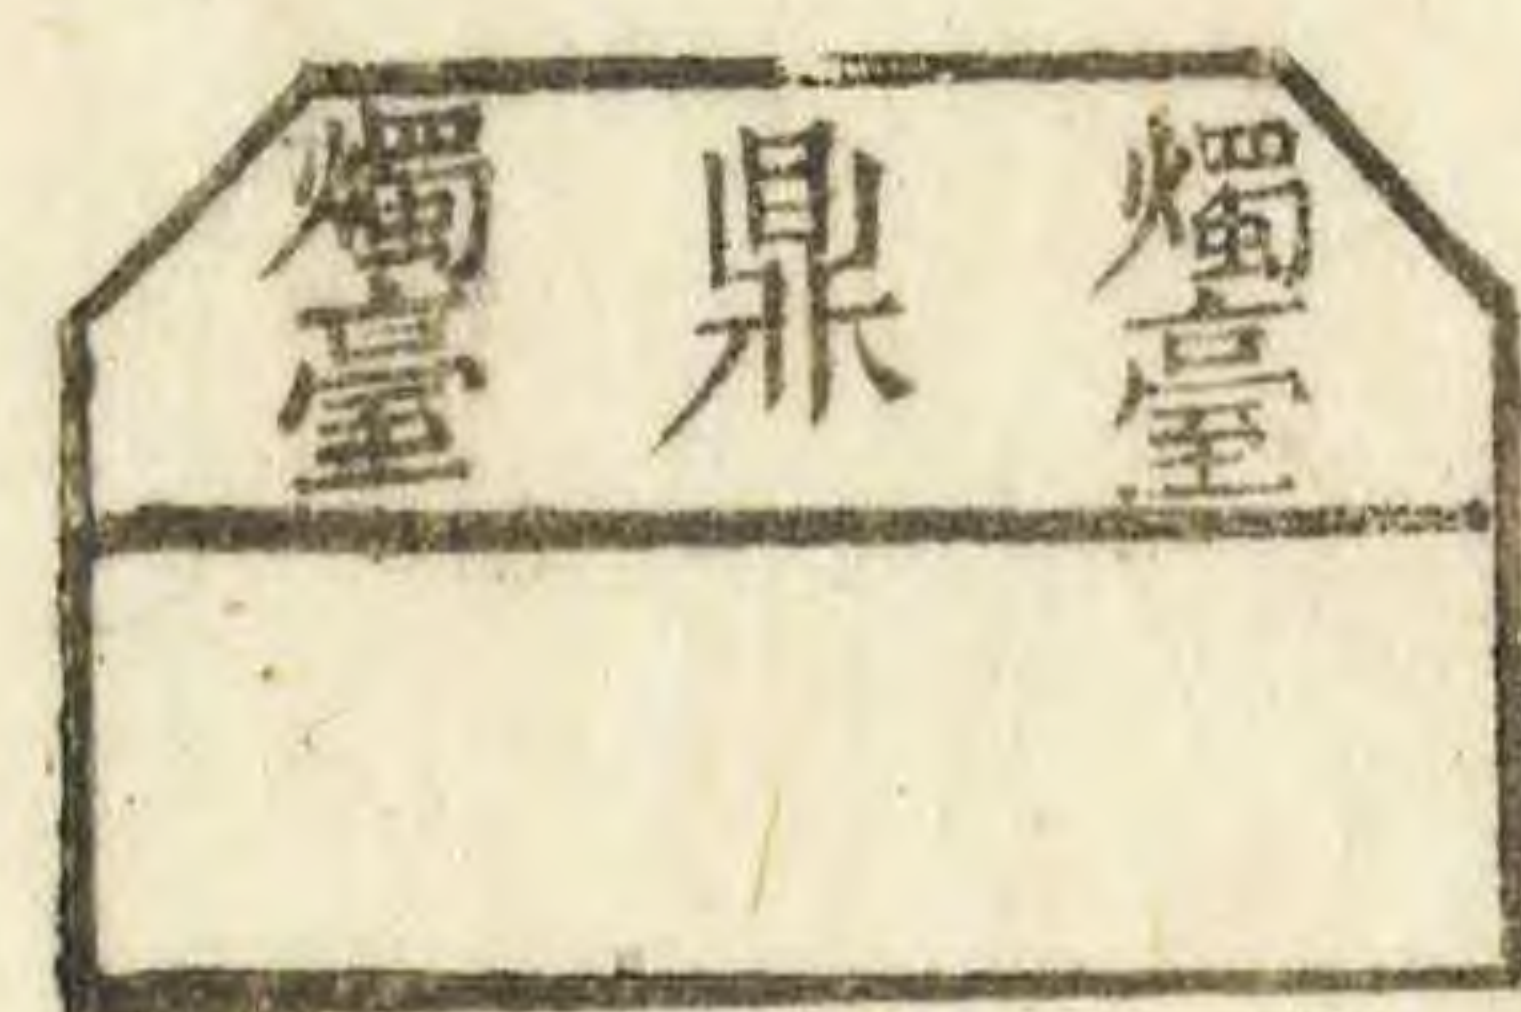 燭臺
鼎
燭臺